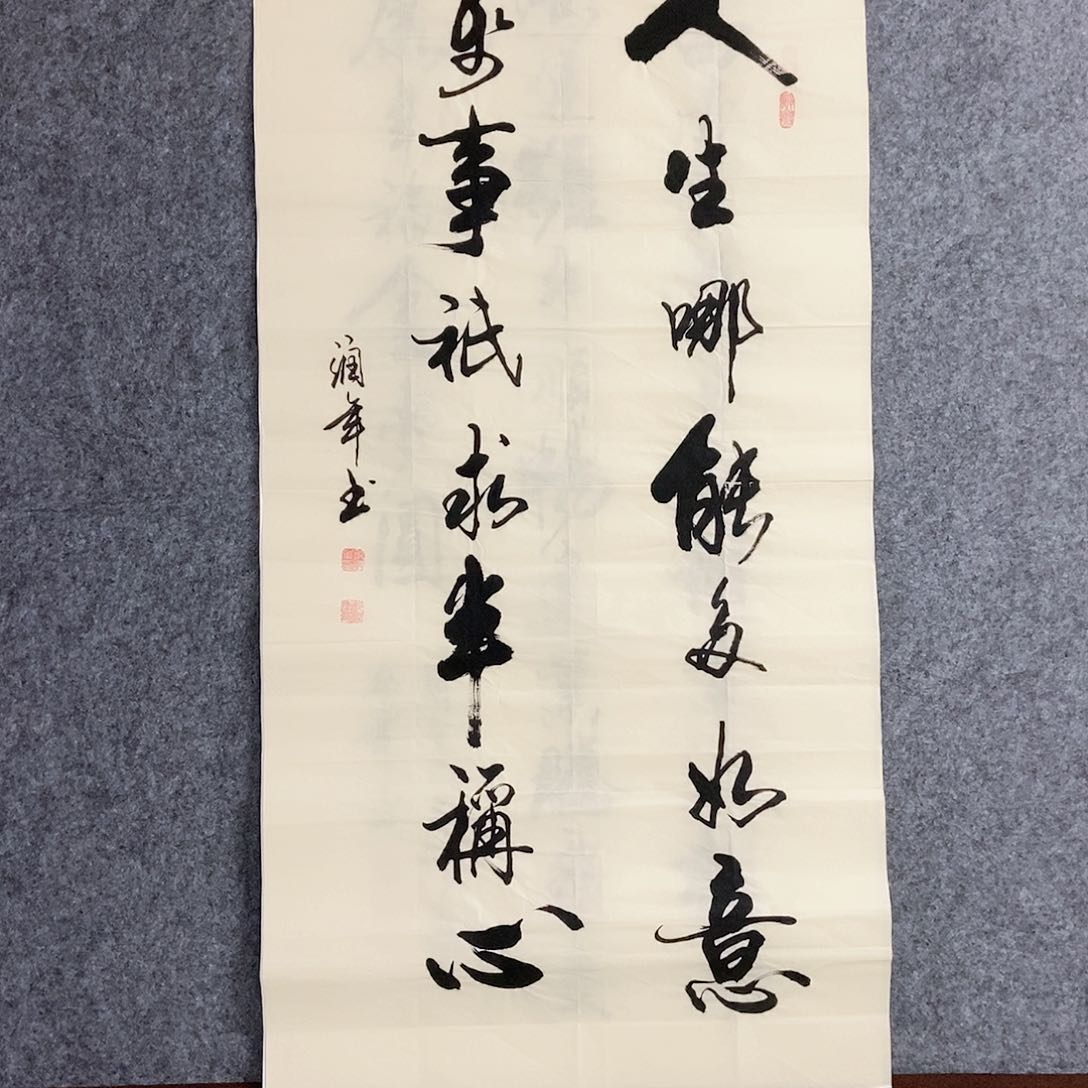 人生哪能多如意
万事祇求半稱心
润年书